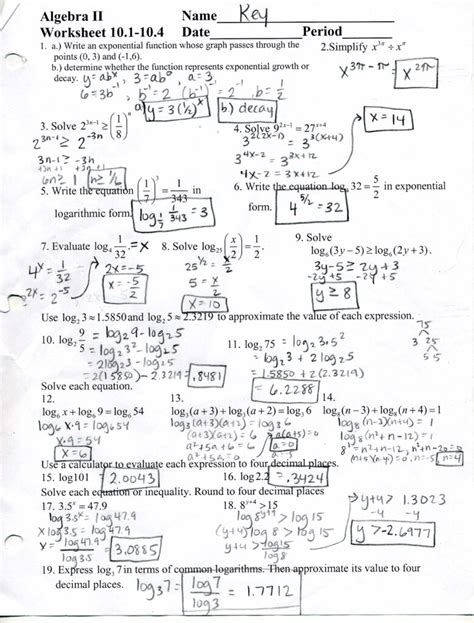 Algebra II Name Key
Worksheet 10.1-10.4 Date Period
1. a.) Write an exponential function whose graph passes through the points (0, 3) and (-1,6).
b.) determine whether the function represents exponential growth or decay.
y=abˣ, 3=ab⁰, a=3,
6=3b⁻¹ b⁻¹=2 (b⁻¹)⁻¹=2⁻¹, b=1/2
a) y=3(1/2)ˣ b.) decay
2. Simplify x^(3π) ÷ x^π
x^(3π-π) = x^(2π)
3. Solve 2^(3n-1) ≥ (1/8)ⁿ
2^(3n-1) ≥ 2^(-3n)
3n-1 ≥ -3n
+3n+1 +3n+1
6n ≥ 1 n ≥ 1/6
4. Solve 9^(2x-1) = 27^(x+4)
3^(2(2x-1)) = 3^(3(x+4))
3^(4x-2) = 3^(3x+12)
4x-2 = 3x+12
x=14
5. Write the equation (1/7)³ = 1/343 in logarithmic form.
log_(1/7) 1/343 = 3
6. Write the equation log₄ 32 = 5/2 in exponential form.
4^(5/2) = 32
7. Evaluate log₄ 1/32. = x
4ˣ = 1/32
2^(2x) = 2⁻⁵
2x = -5
x = -5/2
8. Solve log₂₅ (x/2) = 1/2.
25^(1/2) = x/2
5 = x/2
x=10
9. Solve
log₆(3y-5) ≥ log₆(2y+3).
3y-5 ≥ 2y+3
-2y+5 -2y+5
y ≥ 8
Use log₂ 3 ≈ 1.5850 and log₂ 5 ≈ 2.3219 to approximate the value of each expression.
10. log₂ 9/5 = log₂9-log₂5
= log₂3²-log₂5
= 2log₂3-log₂5
= 2(1.5850)-2.3219 = .8481
11. log₂ 75 = log₂ 3·5²
= log₂3 + 2log₂5
= 1.5850 + 2(2.3219)
= 6.2288
75
3 25
5 5
Solve each equation.
12.
log₆ x + log₆ 9 = log₆ 54
log₆ x·9 = log₆ 54
x·9=54
x=6
13.
log₃(a+3)+log₃(a+2)=log₃ 6
(a+3)(a+2)=6
a²+5a+6=6
a²+5a=0
a(a+5)=0
a=0
14.
log₈(n-3)+log₈(n+4)=1
log₈(n-3)(n+4)=1
Use a calculator to evaluate each expression to four decimal places.
15. log101 2.0043
16. log2.2 .3424
Solve each equation or inequality. Round to four decimal places
17. 3.5ˣ = 47.9
log 3.5ˣ = log 47.9
x log 3.5 = log 47.9
x = log 47.9 / log 3.5
3.0885
18. 8^(y+4) > 15
log 8^(y+4) > log 15
(y+4) log 8 > log 15
y+4 > log 15 / log 8
y+4 > 1.3023
-4 -4
y > -2.6977
19. Express log₃ 7 in terms of common logarithms. Then approximate its value to four decimal places.
log₃7 = log7/log3 = 1.7712